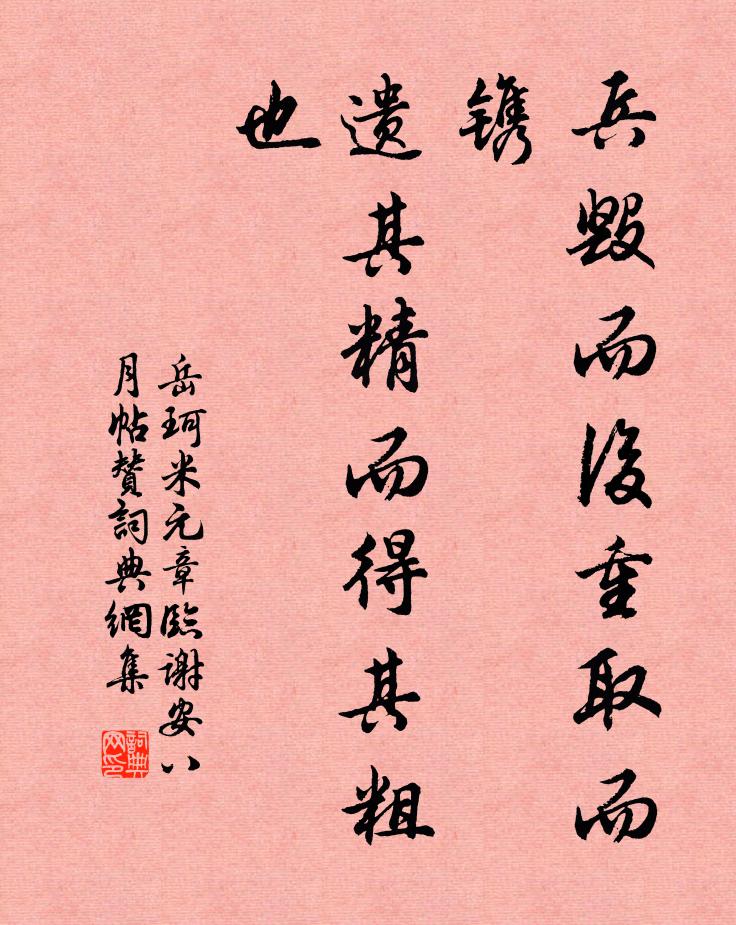 兵毀而後重取而
镌
遗其精而得其粗
也
岳珂米元章臨谢安八
月帖赞詞典網集
詞典
网印